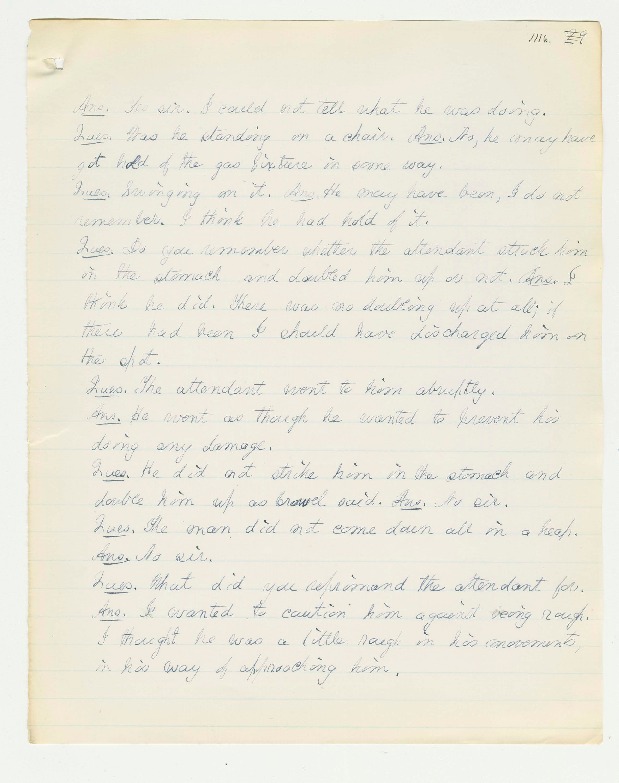 Ans. No sir. I could not tell what he was doing.
Ques. Was he standing on a chair. Ans. No, he may have
got hold of the gas fixture in some way.
Ques. Swinging on it. Ans. He may have been, I do not
remember. I think he had hold of it.
Ques. Do you remember whether the attendant struck him
in the stomach and doubled him up or not. Ans. I
think he did. There was no doubling up at all; if
there had been I should have discharged him on
the spot.
Ques. The attendant went to him abruptly.
Ans. He went as though he wanted to prevent his
doing any damage.
Ques. He did not strike him in the stomach and
double him up as Crowel said. Ans. No sir.
Ques. The man did not come down all in a heap.
Ans. No sir.
Ques. What did you reprimand the attendant for.
Ans. I wanted to caution him against being rough.
I thought he was a little rough in his movements,
in his way of approaching him.